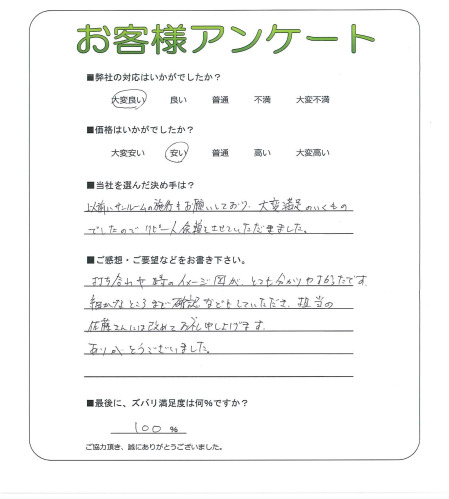 お客様アンケート
■弊社の対応はいかがでしたか？
大変良い 良い 普通 不満 大変不満
■価格はいかがでしたか？
大変安い 安い 普通 高い 大変高い
■当社を選んだ決め手は？
以前、サンルームの施行もお願いしており、大変満足のいくもの
でしたので リピート依頼させていただきました。
■ご感想・ご要望などをお書き下さい。
打ち合わせ時のイメージ図が、とても分かりやすかったです
細かなところまで確認などもしていただき、担当の
佐藤さんには改めてお礼申し上げます。
ありがとうございました。
■最後に、ズバリ満足度は何%ですか？
100 %
ご協力頂き、誠にありがとうございました。